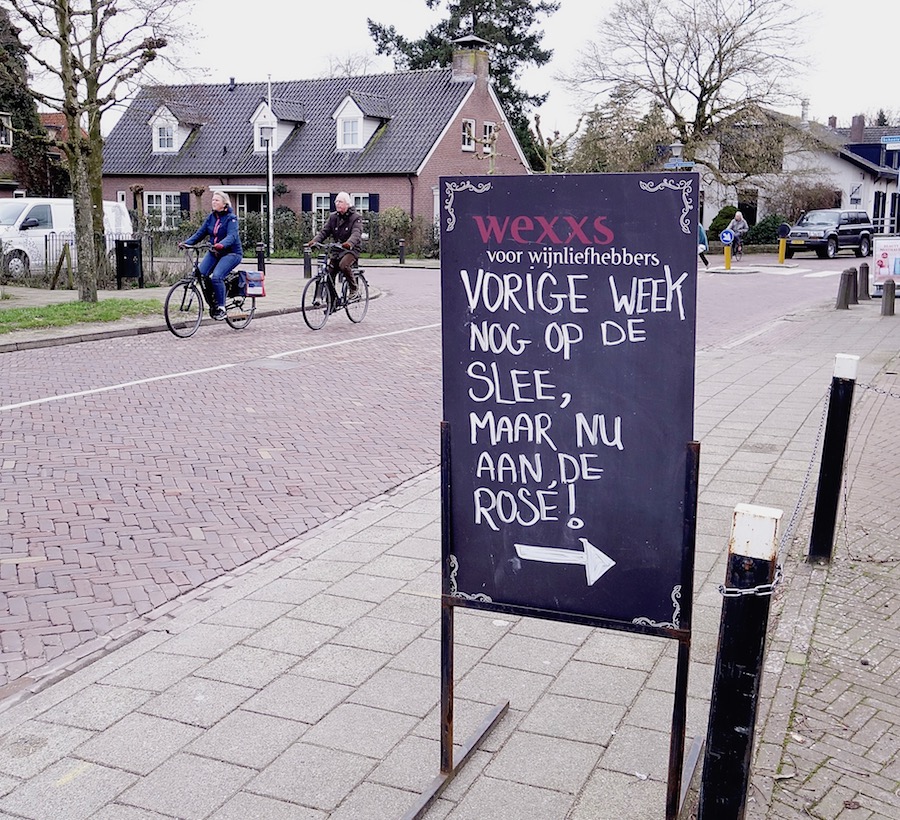 wexxs
voor wijnliefhebbers
VORIGE WEEK
NOG OP DE
SLEE,
MAAR NU
AAN DE
ROSÉ!